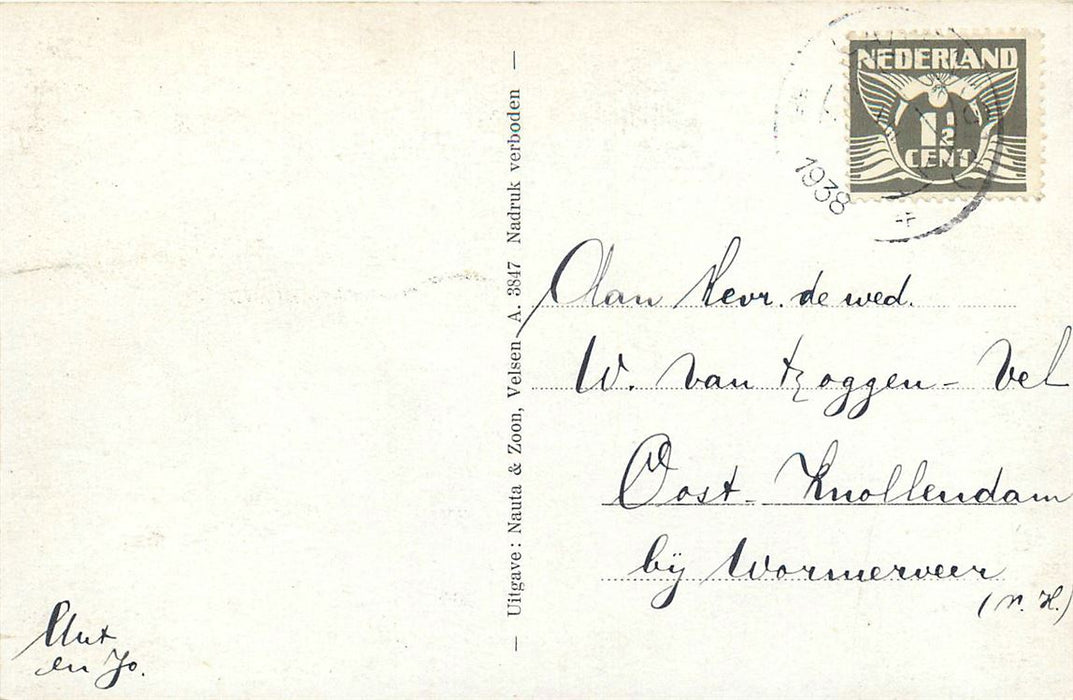 NEDERLAND
1½
CENT
1938
Aan Mevr. de wed.
W. van Zoggen - Vet
Oost - Knollendam
bij Wormerveer
(N. H.)
— Uitgave: Nauta & Zoon, Velsen A. 3847 Nadruk verboden —
en Jo.